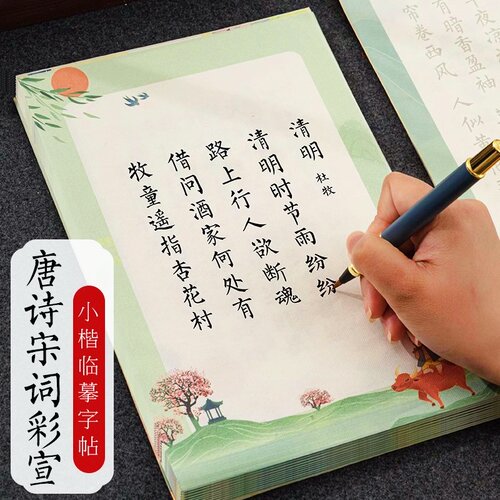 清明 杜牧
清明时节雨纷纷
路上行人欲断魂
借问酒家何处有
牧童遥指杏花村
有暗香盈袖
帘卷西风
人似
唐诗宋词彩宣
小楷临摹字帖